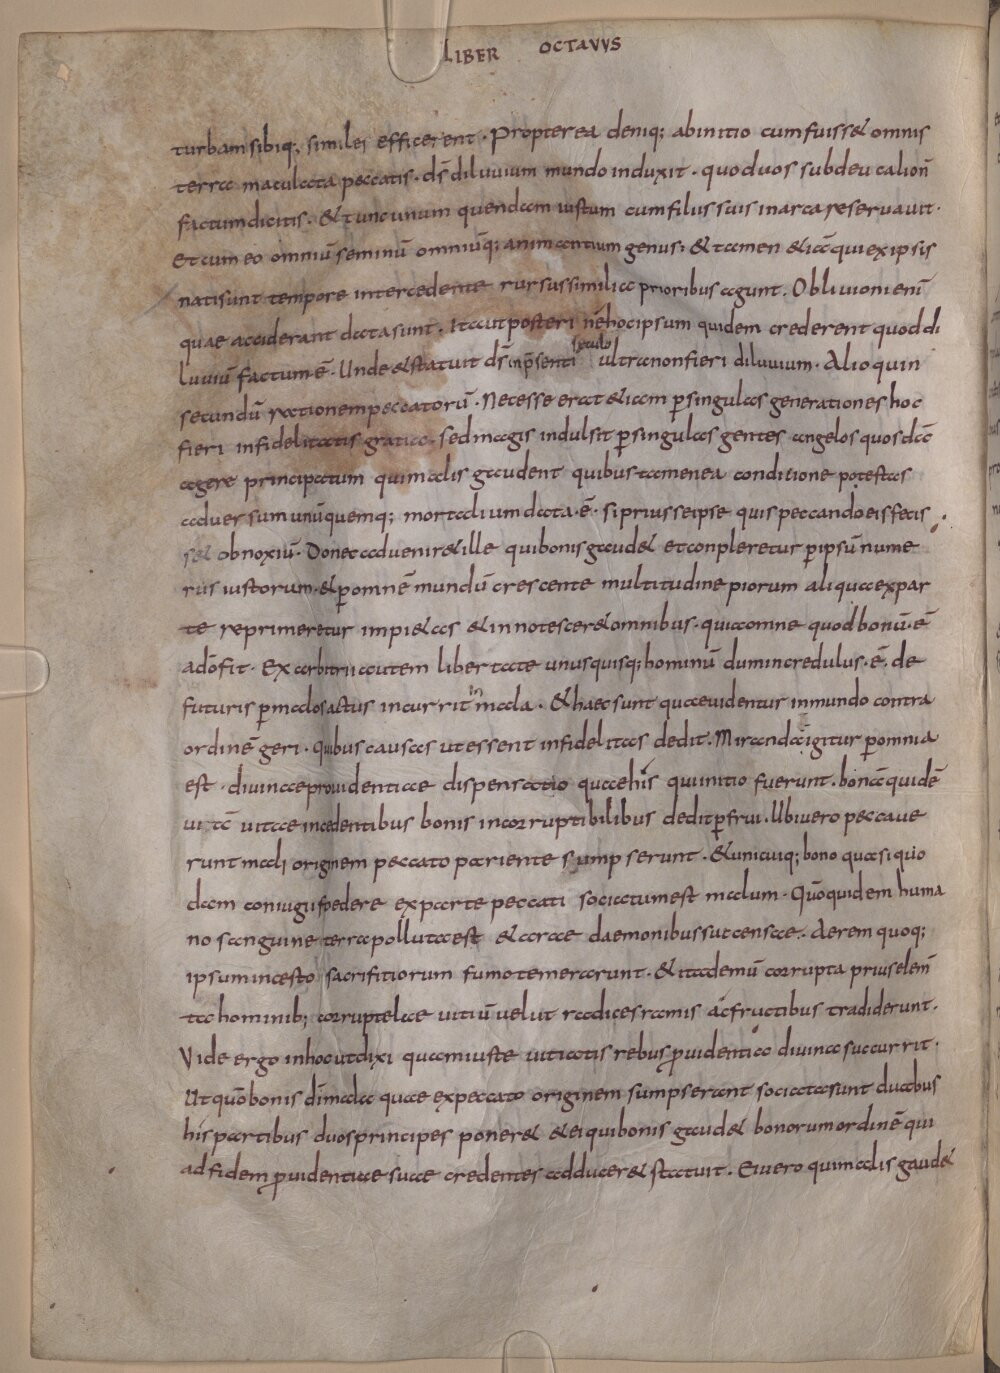 LIBER OCTAVVS
turbam sibiq; similes efficerent. Propterea deniq; abinitio cum fuiss& omnis
terra maculata peccatis. ds̄ diluuium mundo induxit. quod uos subdeucalion̄
factum dicitis. & tunc unum quendam iustum cum filiis suis in arca reseruauit.
Et cum eo omniū seminū omniūq; animantium genus; & tamen & ia̅ qui ex ipsis
nati sunt tempore intercedente rursus similia prioribus agunt. Obliuioni enī
quae acciderant data sunt. Ita ut posteri nē hoc ipsum quidem crederent quod di
luuiū factum ē. Unde & statuit ds̄ inp̄senti seculo ultra non fieri diluuium. Alioquin
secundū rationem peccatorū. Necesse erat & iam p̱ singulas generationes hoc
fieri infidelitatis gratia. sed magis indulsit p̱ singulas gentes angelos quosdā
agere principatum qui malis gaudent quibus tamen ea conditione potestas
aduersum unūquemq; mortalium data .ē. si prius seipse quis peccando eis fecis
s& obnoxiū. Donec aduenir& ille qui bonis gaud& et conpleretur p̱ ipsū nume
rus iustorum. & p̱ omnē mundū crescente multitudine piorum aliqua ex par
te reprimeretur impi&as & innotescer& omnibus. quia omne quod bonū .ē
adō fit. Ex arbitrii autem libertate unusquisq; hominū dum incredulus .ē. de
futuris p̱ malos actus incurrit in mala. & haec sunt quae uidentur in mundo contra
ordinē geri. Quibus causas ut essent infidelitas dedit. Miranda igitur p̱ omnia
est. diuinae prouidentiae dispensatio quae his qui initio fuerunt. bonā quidē
uitā uitae incedentibus bonis incorruptibilibus dedit p̱frui. Ubi uero peccaue
runt mali originem peccato pariente sumpserunt. & unicuiq; bono quasi quo
dam coniugii foedere ex parte peccati sociatum est malum. Quō quidem huma
no sanguine terra polluta est & arae daemonibus succensae. Aerem quoq;
ipsum incesto sacrifitiorum fumo temerarunt. & ita demū corrupta prius elem̄
ta hominib; corruptelae uitiū uelut radices ramis ac fructibus tradiderunt.
Vide ergo in hoc ut dixi quam iuste uitiatis rebus p̱uidentia diuina succurrit.
Ut quō bonis di mala quae ex peccato originem sumpserant sociata sunt duabus
his partibus duos principes poner& & ei qui bonis gaud& bonorum ordinē qui
ad fidem p̱uidentiae suae credentes adducer& statuit. Ei uero qui malis gaud&